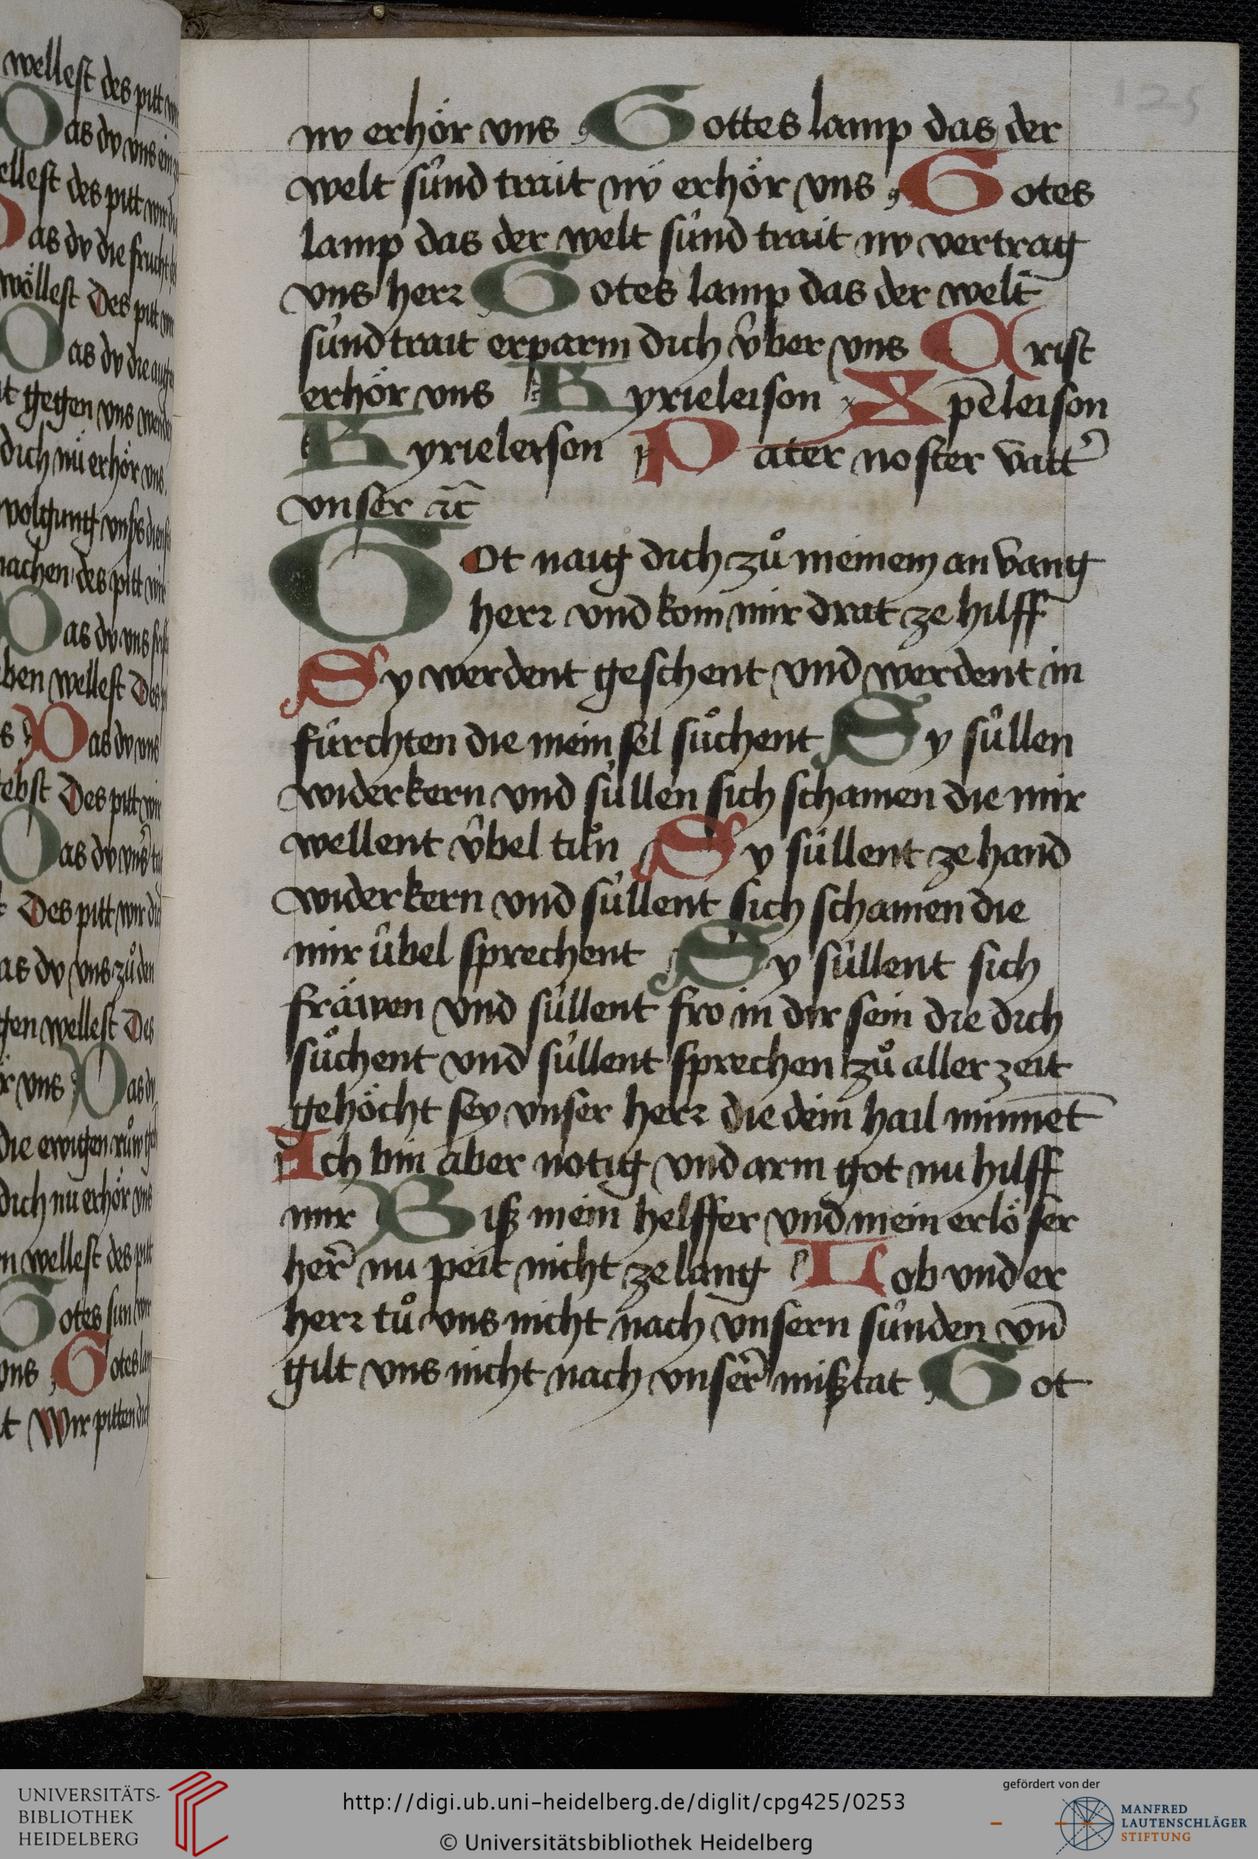 wellest des pitt
as dv vns ein
ellest des pitt wir
as dv die frucht
wöllest Des pitt
as dv die aug
t gegen vns wend
dich nü erhör vns
volgung vnsers
machen des pitt wir
as dv vns
ben wellest Des
s Das dv vns
ebst Des pitt wir
as dv vns
Des pitt wir dich
as dv vns zů den
gen wellest Des
r vns Das dv
die ewigen růw
dich nu erhör vns
n wellest des pitt
Gotes sun
vns Gotes lam
t Wir pitten dich
125
nv erhör vns Gottes lamp das der
welt sünd trait nv erhör vns Gotes
lamp das der welt sünd trait nv vertrag
vns herr Gotes lamp das der welt
sünd trait erparm dich v̈ber vns Crist
erhör vns Kyrieleison Xp̄eleison
Kyrieleison Pater noster vatt᷑
vnser ꝛc̄
GOt naig dich zů meinem anvang
herr vnd kom mir drat ze hilff
Sy werdent geschent vnd werdent in
fürchten die mein sel sůchent Sy süllen
widerkern vnd süllen sich schamen die mir
wellent v̈bel tůn Sy süllent ze hand
widerkern vnd süllent sich schamen die
mir übel sprechent Sy süllent sich
fräwen vnd süllent fro in dir sein die dich
sůchent vnd süllent sprechen zů aller zeit
gehöcht sey vnser herr die dein hail minnet
Ich bin aber notig vnd arm got nu hilff
mir Biß mein helffer vnd mein erlöser
her᷑ nu peit nicht ze lang Lob vnd er
herr tů vns nicht nach vnsern sünden vn̄
gilt vns nicht nach vnser᷑ mißtat Got
UNIVERSITÄTS-
BIBLIOTHEK
HEIDELBERG
http://digi.ub.uni-heidelberg.de/diglit/cpg425/0253
© Universitätsbibliothek Heidelberg
gefördert von der
MANFRED
LAUTENSCHLÄGER
STIFTUNG